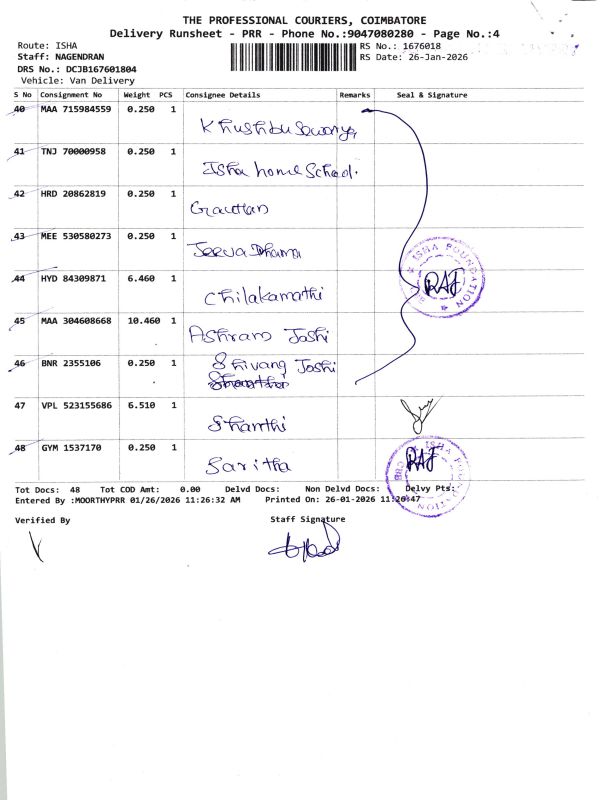 THE PROFESSIONAL COURIERS, COIMBATORE
Delivery Runsheet - PRR - Phone No.:9047080280 - Page No.:4
Route: ISHA
RS No.: 1676018
Staff: NAGENDRAN
RS Date: 26-Jan-2026
DRS No.: DCJB167601804
Vehicle: Van Delivery
S No Consignment No Weight PCS Consignee Details Remarks Seal & Signature
40 MAA 715984559 0.250 1
Khushbu
41 TNJ 70000958 0.250 1
Isha home School.
42 HRD 20862819 0.250 1
Gauthan
43 MEE 530580273 0.250 1
Jeeva Dhama
44 HYD 84309871 6.460 1
Chilakamathi
ISHA FOUNDATION
RAJ
45 MAA 304608668 10.460 1
Ashram Joshi
46 BNR 2355106 0.250 1
Shivang Joshi
47 VPL 523155686 6.510 1
Shanthi
48 GYM 1537170 0.250 1
Saritha
ISHA FOUNDATION
RAJ
Tot Docs: 48 Tot COD Amt: 0.00 Delvd Docs: Non Delvd Docs: Delvy Pts:
Entered By :MOORTHYPRR 01/26/2026 11:26:32 AM Printed On: 26-01-2026 11:26:47
Verified By Staff Signature